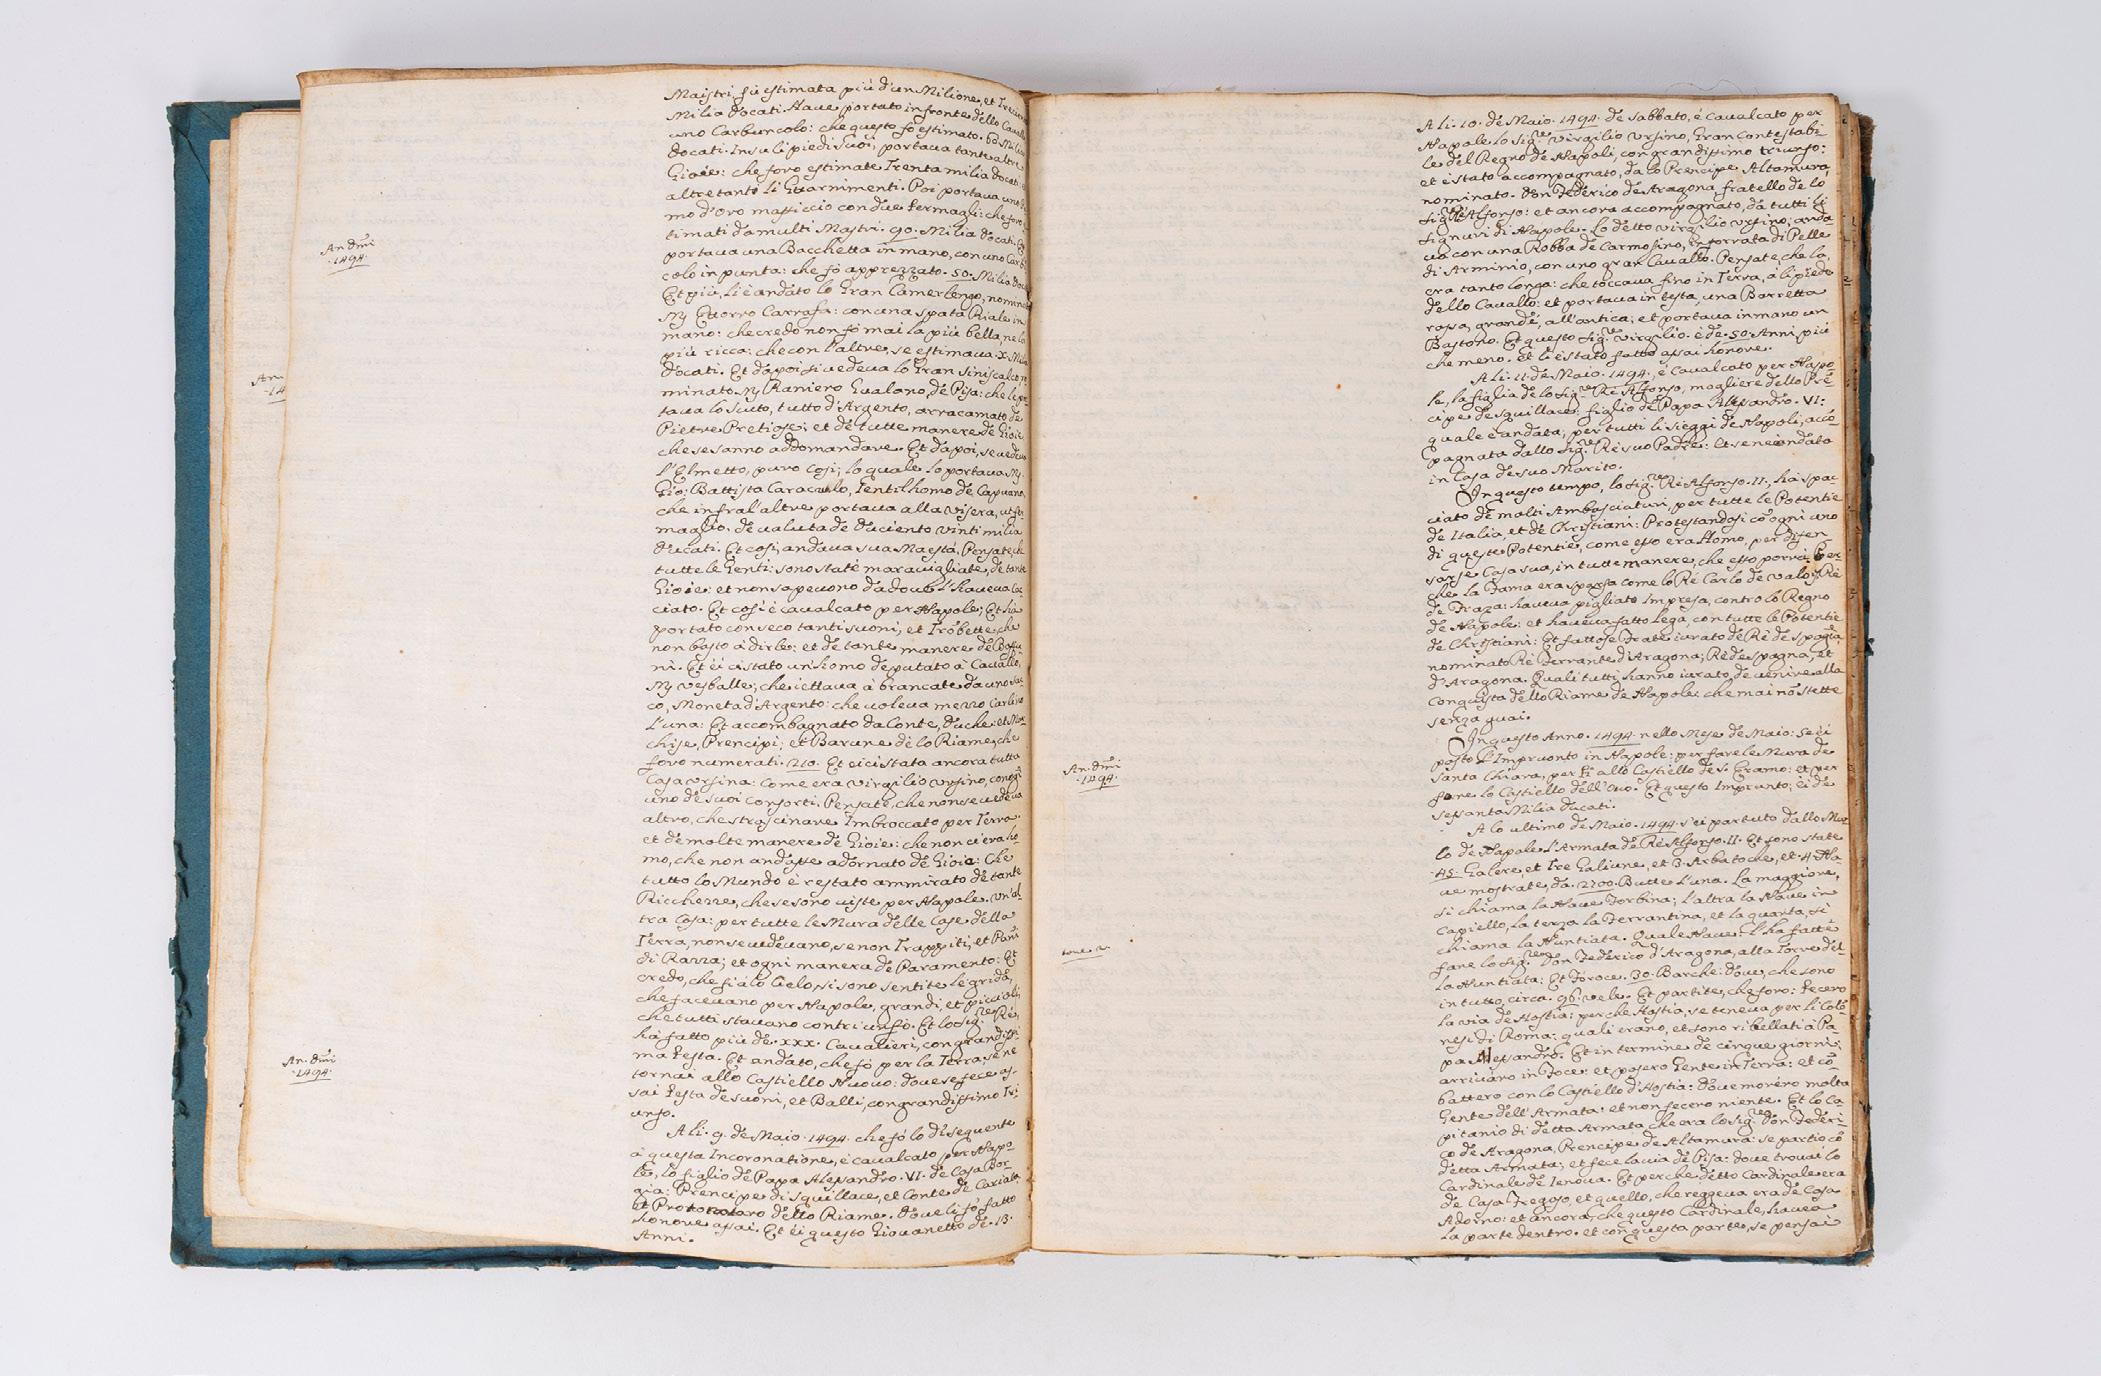 Maistri fù estimata più d'un Milione, et Trecento
Milia docati. Have portato in fronte dello Cavallo
uno Carbuncolo: che questo fò estimato. 60 Milia
docati. In su li piedi suoi, portava tante altre
Gioie: che foro estimate Trenta milia docati
altretanto li Guarnimenti. Poi portava uno
mo d'Oro massiccio con due fermagli: che foro
timati da multi Mastri. 90. Milia docati. Et
portava una Bacchetta in mano, con uno Carbũ
colo in punta: che fò apprezzato. 50. Milia Doca
Et più, li è andato lo Gran Camerlengo, nomina
Carrafa: con una spata Riale in
mano: che credo non fò mai la più bella, ne la
più ricca: che con l'altre, se estimava. X. Milia
docati. Et dapoi si vedeva lo Gran Siniscalco no
minato Raniero Gualano, de Pisa: che le por
tava lo Scuto, tutto d'Argento, arracamato de
Pietre Pretiose: et de tutte manere de Gioie
che se sanno addomandare. Et dapoi, se vedeva
l'Elmetto, puro cosi; lo quale lo portava
Gio: Battista Caraculo, Gentilhomo de Capuana,
che infra l'altre portava alla Visera, un fer
maglio. de valuta de duciento vinti milia
ducati. Et cosi, andava sua Maestà, Pensate, ch
tutte le Genti: sono state maravigliate, de tante
Gioie: et non sapevono da dove l'haveva Ca-
ciato. Et cosi è cavalcato per Napole; Et hà
portato con seco tanti suoni, et Trõbette, che
non basto à dirle: et de tante manere de Boffu
ni. Et ci è stato un homo deputato à Cavallo,
che iettava à brancate da uno sac
co, Moneta d'Argento: che voleva mezzo Carlino
l'una: Et accombagnato da Conte, Duche: et Mar
chise, Prencipi; et Barune de lo Riame, che
foro numerati. 210. Et ci è stata ancora tutta
Casa Ursina: come era Virgilio Ursino, con ogn'
uno de suoi consorti. Pensate, che non se vedeva
altro, che strascinare Imbroccato per Terra.
et de molte manere de Gioie: che non ci era ho
mo, che non andasse adornato de Gioie: Che
tutto lo Mundo è restato ammirato de tante
Ricchezze, che se sono viste per Napole. Un'al
tra Cosa: per tutte le Mura delle Case della
Terra, non se vedevano, se non Trappiti, et Panni
di Razza; et ogni manera de Paramento: Et
credo, che fi à lo Cielo, si sono sentite le grida,
che facevano per Napole, grandi, et piccioli;
che tutti stavano contriunfo. Et lo Sig.re Rè,
hà fatto più de. XXX. Cavalieri, con grandissi
ma Festa. Et andato, che fò per la Terra, se ne
tornai allo Castiello Nuovo: dove se fece as-
sai Festa de suoni, et Balli, con grandissimo Tri
unfo.
A li. 9. de Maio. 1494. che fò lo dì sequente
à questa Incoronatione, è cavalcato per Napo
le, lo figlio de Papa Alessandro. VI. de Casa Bor-
gia: Prencipe di Squillace, et Conte de Cariata
et Protonotaro dello Riame. Dove li fò fatto
honore assai. Et èi questo Giovanetto de. 13.
Anni.
An. dm̃i
.1494.
An.
.14
An. dm̃i
.1494.
A li. 10. de Maio. 1494. de Sabbato, è Cavalcato per
Napole lo Sig.re Virgilio Ursino, Gran Contestabi-
le del Regno de Napoli, con grandissimo triunfo:
et è stato accompagnato, da lo Prencipe Altamura,
nominato. Don Federico de Aragona fratello de lo
Sig.re Rè Alfonso: et ancora accompagnato, da tutti li
Signuri di Napole. Lo detto Virgilio Ursino; anda
va con una Robba de Carmosino, forrata di Pelle
di Arminio, con uno gran Cavallo. Pensate, che la,
era tanto longa: che toccava fino in Terra, à li piedi
dello Cavallo: et portava in testa, una Barretta
rossa, grande, all'antica; et portava in mano un
Bastone. Et questo Sig.re Virgilio. è de. 50. Anni più
che meno. et li è stato fatto assai honore.
A li. 11. de Maio. 1494. è Cavalcato per Napo-
le, la figlia de lo Sig.re Rè Alfonso, magliere dello Prẽ-
cipe de Squillace: figlio de Papa Alessandro. VI:
quale è andata; per tutti li Sieggi de Napoli, accõ-
pagnata dallo Sig.re Rè suo Padre. Et se ne è andata
in Casa de suo Marito.
In questo tempo, lo Sig.re Rè Alfonso. II., hà spac-
ciato de molti Ambasciaturi, per tutte le Potentie
de Italia, et de Christiani: Protestandosi cõ ogni uno
di queste Potentie, come esso era Homo, per difen
sarse Casa sua, in tutte manere, che esso porrà. Per-
che la Fama era sparsa come lo Rè Carlo de Valois, Rè
de Franza: haveva pigliato Impresa, contro lo Regno
de Napole: et haveva fatto Lega, con tutte le Potentie
de Christiani: Et fattose Frate iurato de Rè de Spagna,
nominato Rè Ferrante d'Aragona; Rè de Spagna, et
d'Aragona. Quali tutti hanno iurato, de venire alla
conquista dello Riame de Napole: che mai nõ stette
senza guai.
In questo Anno. 1494. nello Mese de Maio: se èi
posto l'Impruonto in Napole: per fare le Mura de
Santa Chiara, per fi allo Castiello de S. Eramo: et per
fare lo Castiello dell'Ovo. Et questo Imprunto; èi de
sessanta Milia ducati.
A lo ultimo de Maio. 1494. s'èi partuto dallo Muo
lo de Napole l'Armata de Rè Alfonso. II. Et sono state
.45. Galere, et Tre Galiune, et 3. Arbatoche, et. 4. Na-
ve mostrate, da. 2700. Butte l'una. La maggiore,
si chiama la Nave Forbina; l'altra la Nave in
Capiello, la terza la Ferrantina, et la quarta, si
chiama la Nuntiata. Quale Nave: l'hà fatte
fare lo Sig.re Don Federico d'Aragona, alla Torre del
la Nuntiata: Et Foroce. 30. Barche: dove, che sono
in tutto, circa. 96. vele. Et partite, che foro: fecero
la via de Hostia: perche Hostia, se teneva per li Colõ
nesi di Roma: quali erano, et sono ribellati à Pa-
pa Alessandro. Et in termine de cinque giorni;
arrivàro in Foce: et posero Gente in Terra: et cõ
battero con lo Castiello d'Hostia: dove moréro molta
Gente dell'Armata: et non fecero niente. Et lo Ca
pitanio di detta Armata che era lo Sig.re Don Federi-
co de Aragona, Prencipe de Altamura: se partio cõ
detta Armata; et fece la via de Pisa: dove trovai lo
Cardinale de Ienova. Et perche detto Cardinale era
de Casa Fregoso, et quello, che reggeva era de Casa
Adorno: et ancora, che questo Cardinale, havea
la parte dentro. et con questa parte, se pensai
An. dm̃i
.1494.